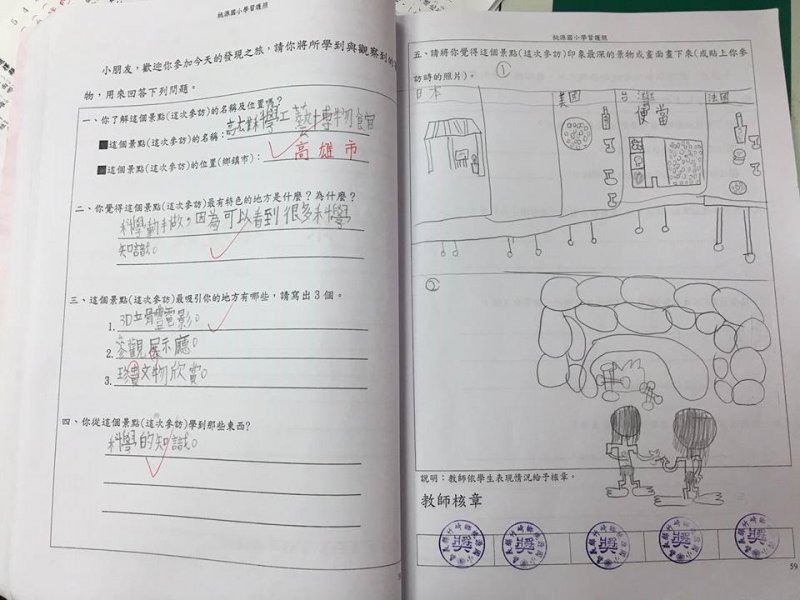 桃源國小學習護照
小朋友，歡迎你參加今天的發現之旅，請你將所學到與觀察到的
物，用來回答下列問題。
一、你了解這個景點(這次參訪)的名稱及位置嗎？
■這個景點(這次參訪)的名稱：高雄科學工藝博物館
■這個景點(這次參訪)的位置(鄉鎮市)：高雄市
二、你覺得這個景點(這次參訪)最有特色的地方是什麼？為什麼？
科學動手做，因為可以看到很多科學
知識。
三、這個景點(這次參訪)最吸引你的地方有哪些，請寫出3個。
1. 3D立體電影。
2. 參觀展示廳。
3. 珍貴文物欣賞。
四、你從這個景點(這次參訪)學到那些東西？
科學的知識。
桃源國小學習護照
五、請將你覺得這個景點(這次參訪)印象最深的景物或畫面畫下來(或貼上你參
訪時的照片)。
①
日本
美國
台灣
便當
法國
②
說明：教師依學生表現情況給予核章。
教師核章
獎
獎
獎
獎
獎
59